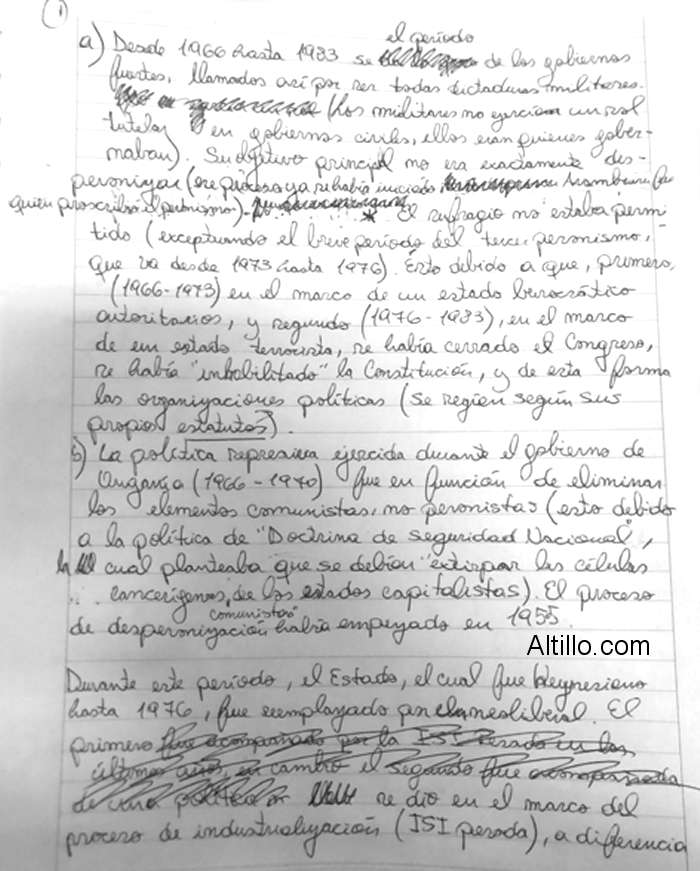 1
el período
a) Desde 1966 hasta 1983 se de los gobiernos
fuertes, llamados así por ser todas dictaduras militares.
(Los militares no ejercían un rol
tutelar en gobiernos civiles, ellos eran quienes gober-
naban). Su objetivo principal no era exactamente des-
peronizar (ese proceso ya se había iniciado Aramburu fue
quien proscribió el peronismo). * El sufragio no estaba permi
tido (exceptuando el breve período del tercer peronismo,
que va desde 1973 hasta 1976). Esto debido a que, primero,
(1966-1973) en el marco de un estado burocrático
autoritarios, y segundo (1976-1983), en el marco
de un estado terrorista, se había cerrado el Congreso,
se había "inhabilitado" la Constitución, y de esta forma
las organizaciones políticas (se regían según sus
propios estatutos).
b) La política represiva ejercida durante el gobierno de
Onganía (1966-1970) fue en función de eliminar
los elementos comunistas, no peronistas (esto debido
a la política de "Doctrina de Seguridad Nacional",
la cual planteaba que se debían "extirpar las células
cancerígenas, de los estados capitalistas). El proceso
comunistas"
de desperonización había empezado en 1955.
Altillo.com
Durante este período, el Estado, el cual fue Keynesiano
hasta 1976, fue reemplazado por el neoliberal. El
primero fue acompañado por la ISI pesada en los
últimos años, en cambio el segundo fue acompañada
de una política se dio en el marco del
proceso de industrialización (ISI pesada), a diferencia